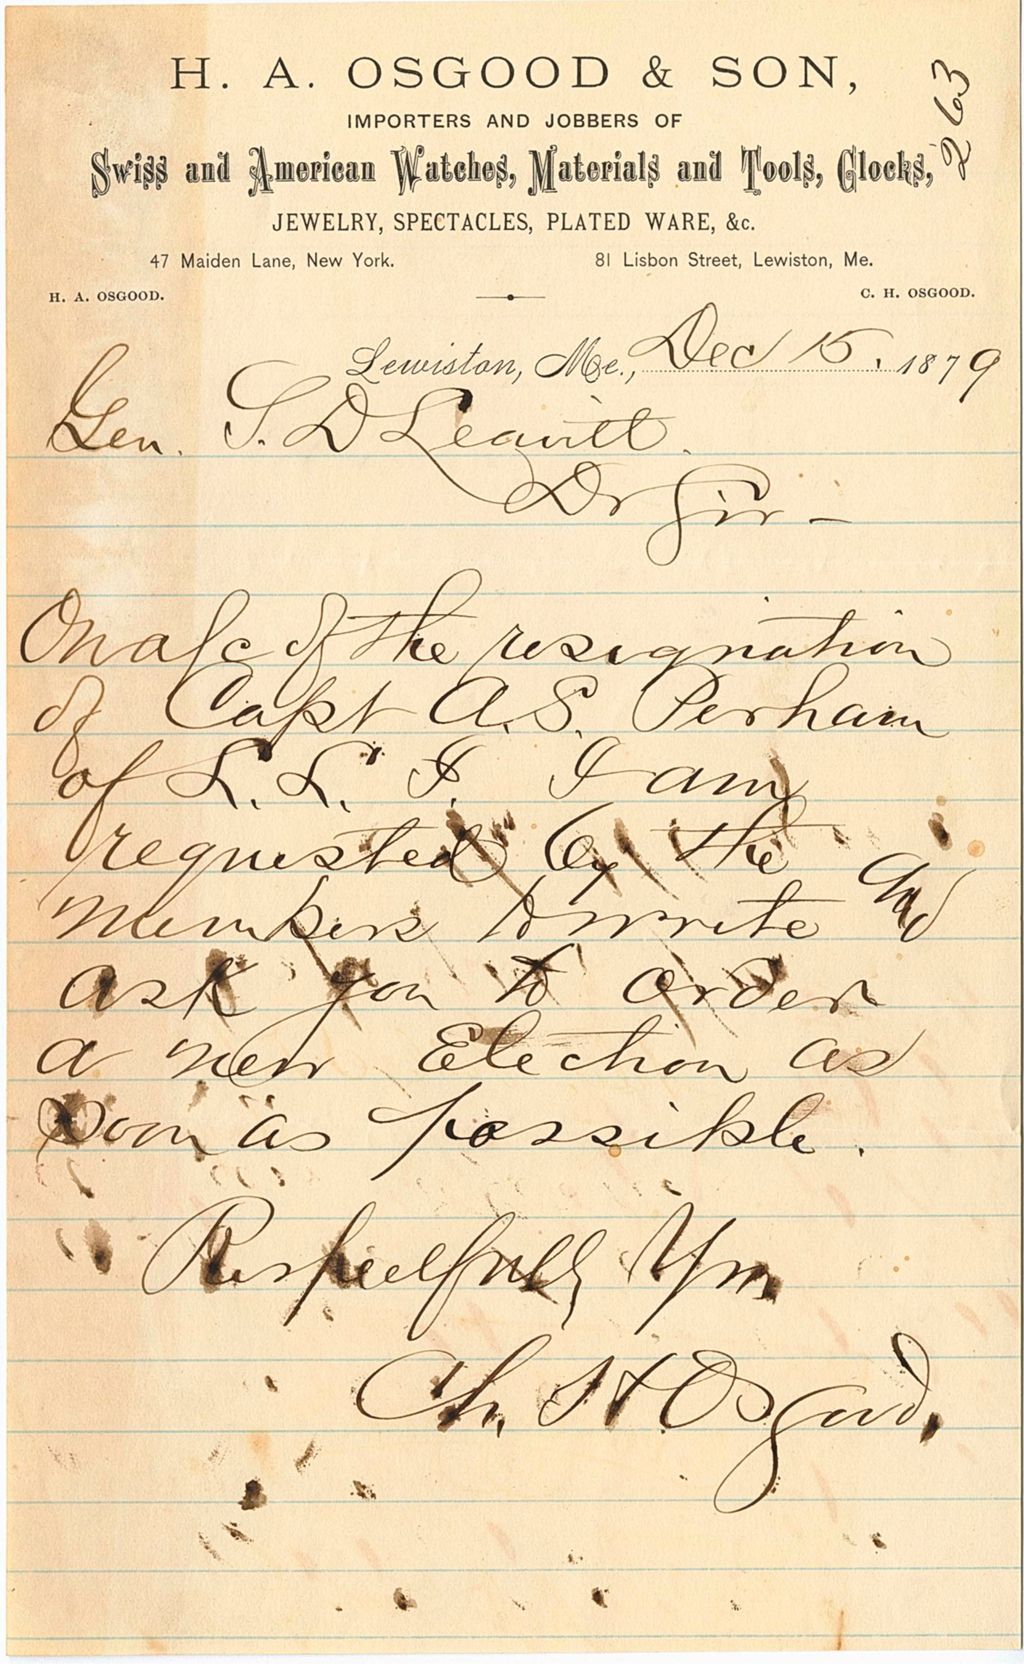 263
H. A. OSGOOD & SON,
IMPORTERS AND JOBBERS OF
Swiss and American Watches, Materials and Tools, Clocks,
JEWELRY, SPECTACLES, PLATED WARE, &c.
47 Maiden Lane, New York. 81 Lisbon Street, Lewiston, Me.
H. A. OSGOOD. C. H. OSGOOD.
Lewiston, Me., Dec 15. 1879
Gen. S. D Leavitt
Dr Sir -
On a/c of the resignation
of Capt A. S. Perham
of L. L. I. I am
requested by the
members to write and
ask you to order
a new Election as
soon as possible.
Respectfully Yrs.
Ch. H Osgood.